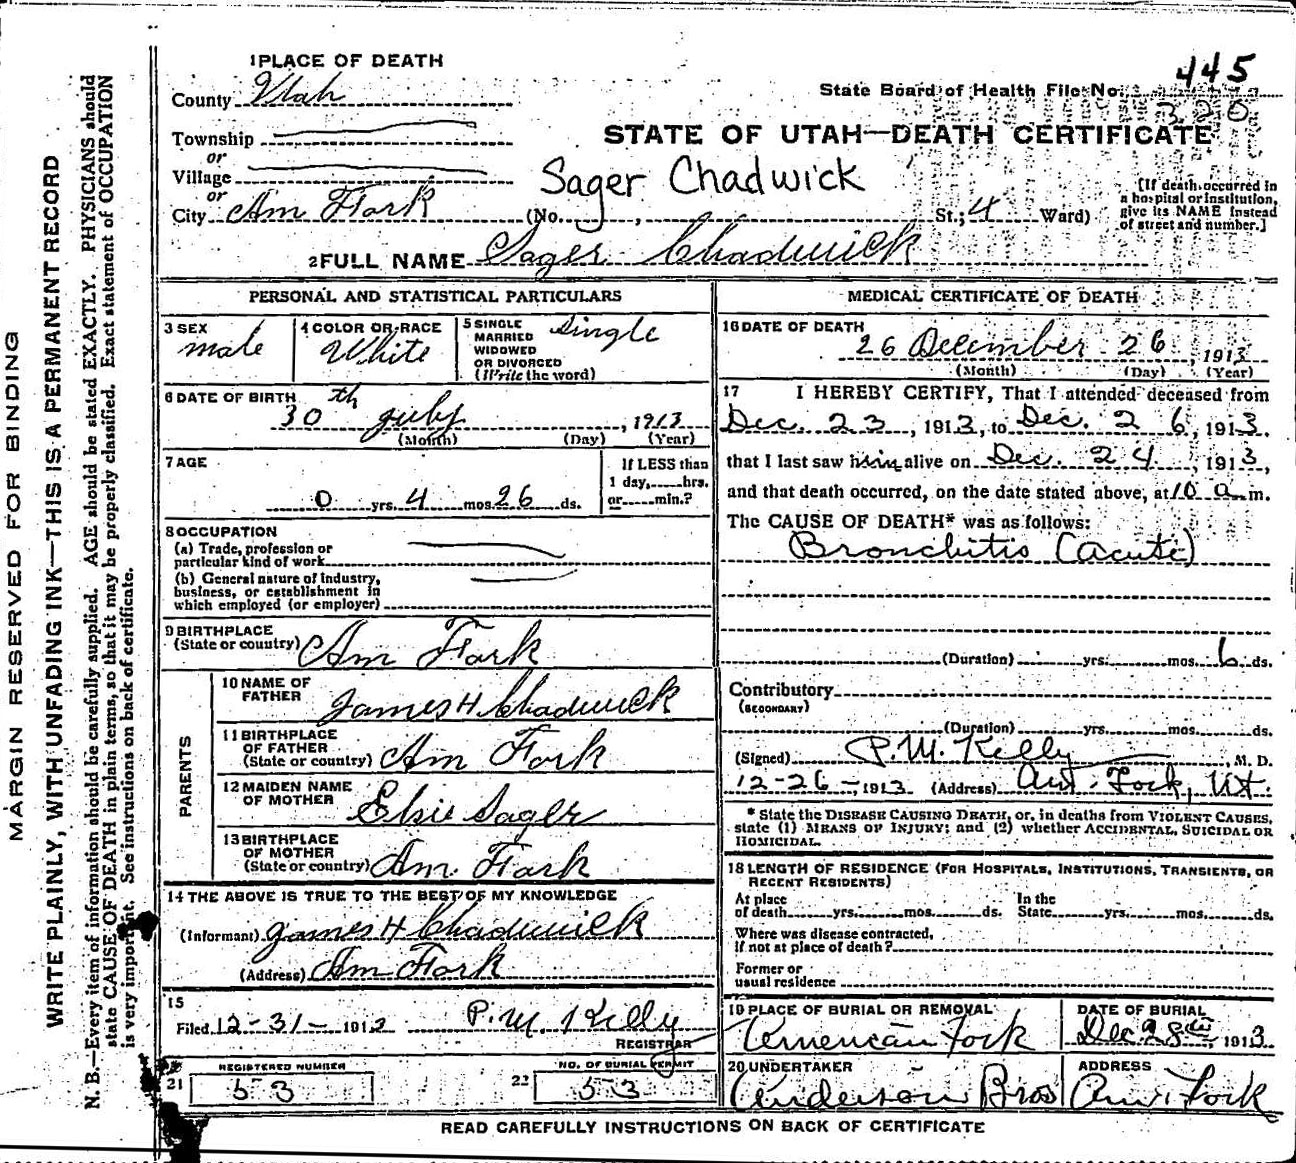 MARGIN RESERVED FOR BINDING
WRITE PLAINLY, WITH UNFADING INK—THIS IS A PERMANENT RECORD
N. B.—Every item of information should be carefully supplied. AGE should be stated EXACTLY. PHYSICIANS should
state CAUSE OF DEATH in plain terms, so that it may be properly classified. Exact statement of OCCUPATION
is very important. See instructions on back of certificate.
1 PLACE OF DEATH
County Utah
Township
or
Village
or
City Am Fork (No. , St.; 4 Ward)
445
State Board of Health File No.
320
STATE OF UTAH—DEATH CERTIFICATE
Sager Chadwick
[If death occurred in
a hospital or institution,
give its NAME instead
of street and number.]
2 FULL NAME Sager Chadwick
PERSONAL AND STATISTICAL PARTICULARS
3 SEX male
4 COLOR OR RACE White
5 SINGLE
MARRIED
WIDOWED
OR DIVORCED
(Write the word)
Single
6 DATE OF BIRTH
30th July, 1913
(Month) (Day) (Year)
7 AGE
0 yrs. 4 mos. 26 ds.
If LESS than
1 day, hrs.
or min.?
8 OCCUPATION
(a) Trade, profession or
particular kind of work
(b) General nature of industry,
business, or establishment in
which employed (or employer)
9 BIRTHPLACE
(State or country) Am Fork
PARENTS
10 NAME OF
FATHER James H Chadwick
11 BIRTHPLACE
OF FATHER
(State or country) Am Fork
12 MAIDEN NAME
OF MOTHER Elsie Sager
13 BIRTHPLACE
OF MOTHER
(State or country) Am. Fork
14 THE ABOVE IS TRUE TO THE BEST OF MY KNOWLEDGE
(Informant) James H Chadwick
(Address) Am Fork
15
Filed 12-31-1913 P. M. Kelly
REGISTRAR
21 REGISTERED NUMBER
53
22 NO. OF BURIAL PERMIT
53
MEDICAL CERTIFICATE OF DEATH
16 DATE OF DEATH
26 December 26, 1913
(Month) (Day) (Year)
17 I HEREBY CERTIFY, That I attended deceased from
Dec. 23, 1913, to Dec. 26, 1913.
that I last saw him alive on Dec. 24, 1913,
and that death occurred, on the date stated above, at 10 a m.
The CAUSE OF DEATH* was as follows:
Bronchitis (acute)
(Duration) yrs. mos. 6 ds.
Contributory
(SECONDARY)
(Duration) yrs. mos. ds.
(Signed) P. M. Kelly, M. D.
12-26-, 1913 (Address) Am. Fork, Ut.
* State the DISEASE CAUSING DEATH, or, in deaths from VIOLENT CAUSES,
state (1) MEANS OF INJURY; and (2) whether ACCIDENTAL, SUICIDAL OR
HOMICIDAL.
18 LENGTH OF RESIDENCE (FOR HOSPITALS, INSTITUTIONS, TRANSIENTS, OR
RECENT RESIDENTS)
At place
of death yrs. mos. ds.
In the
State yrs. mos. ds.
Where was disease contracted,
if not at place of death?
Former or
usual residence
19 PLACE OF BURIAL OR REMOVAL
American Fork
DATE OF BURIAL
Dec 28th, 1913
20 UNDERTAKER
Anderson Bros
ADDRESS
Am. Fork
READ CAREFULLY INSTRUCTIONS ON BACK OF CERTIFICATE